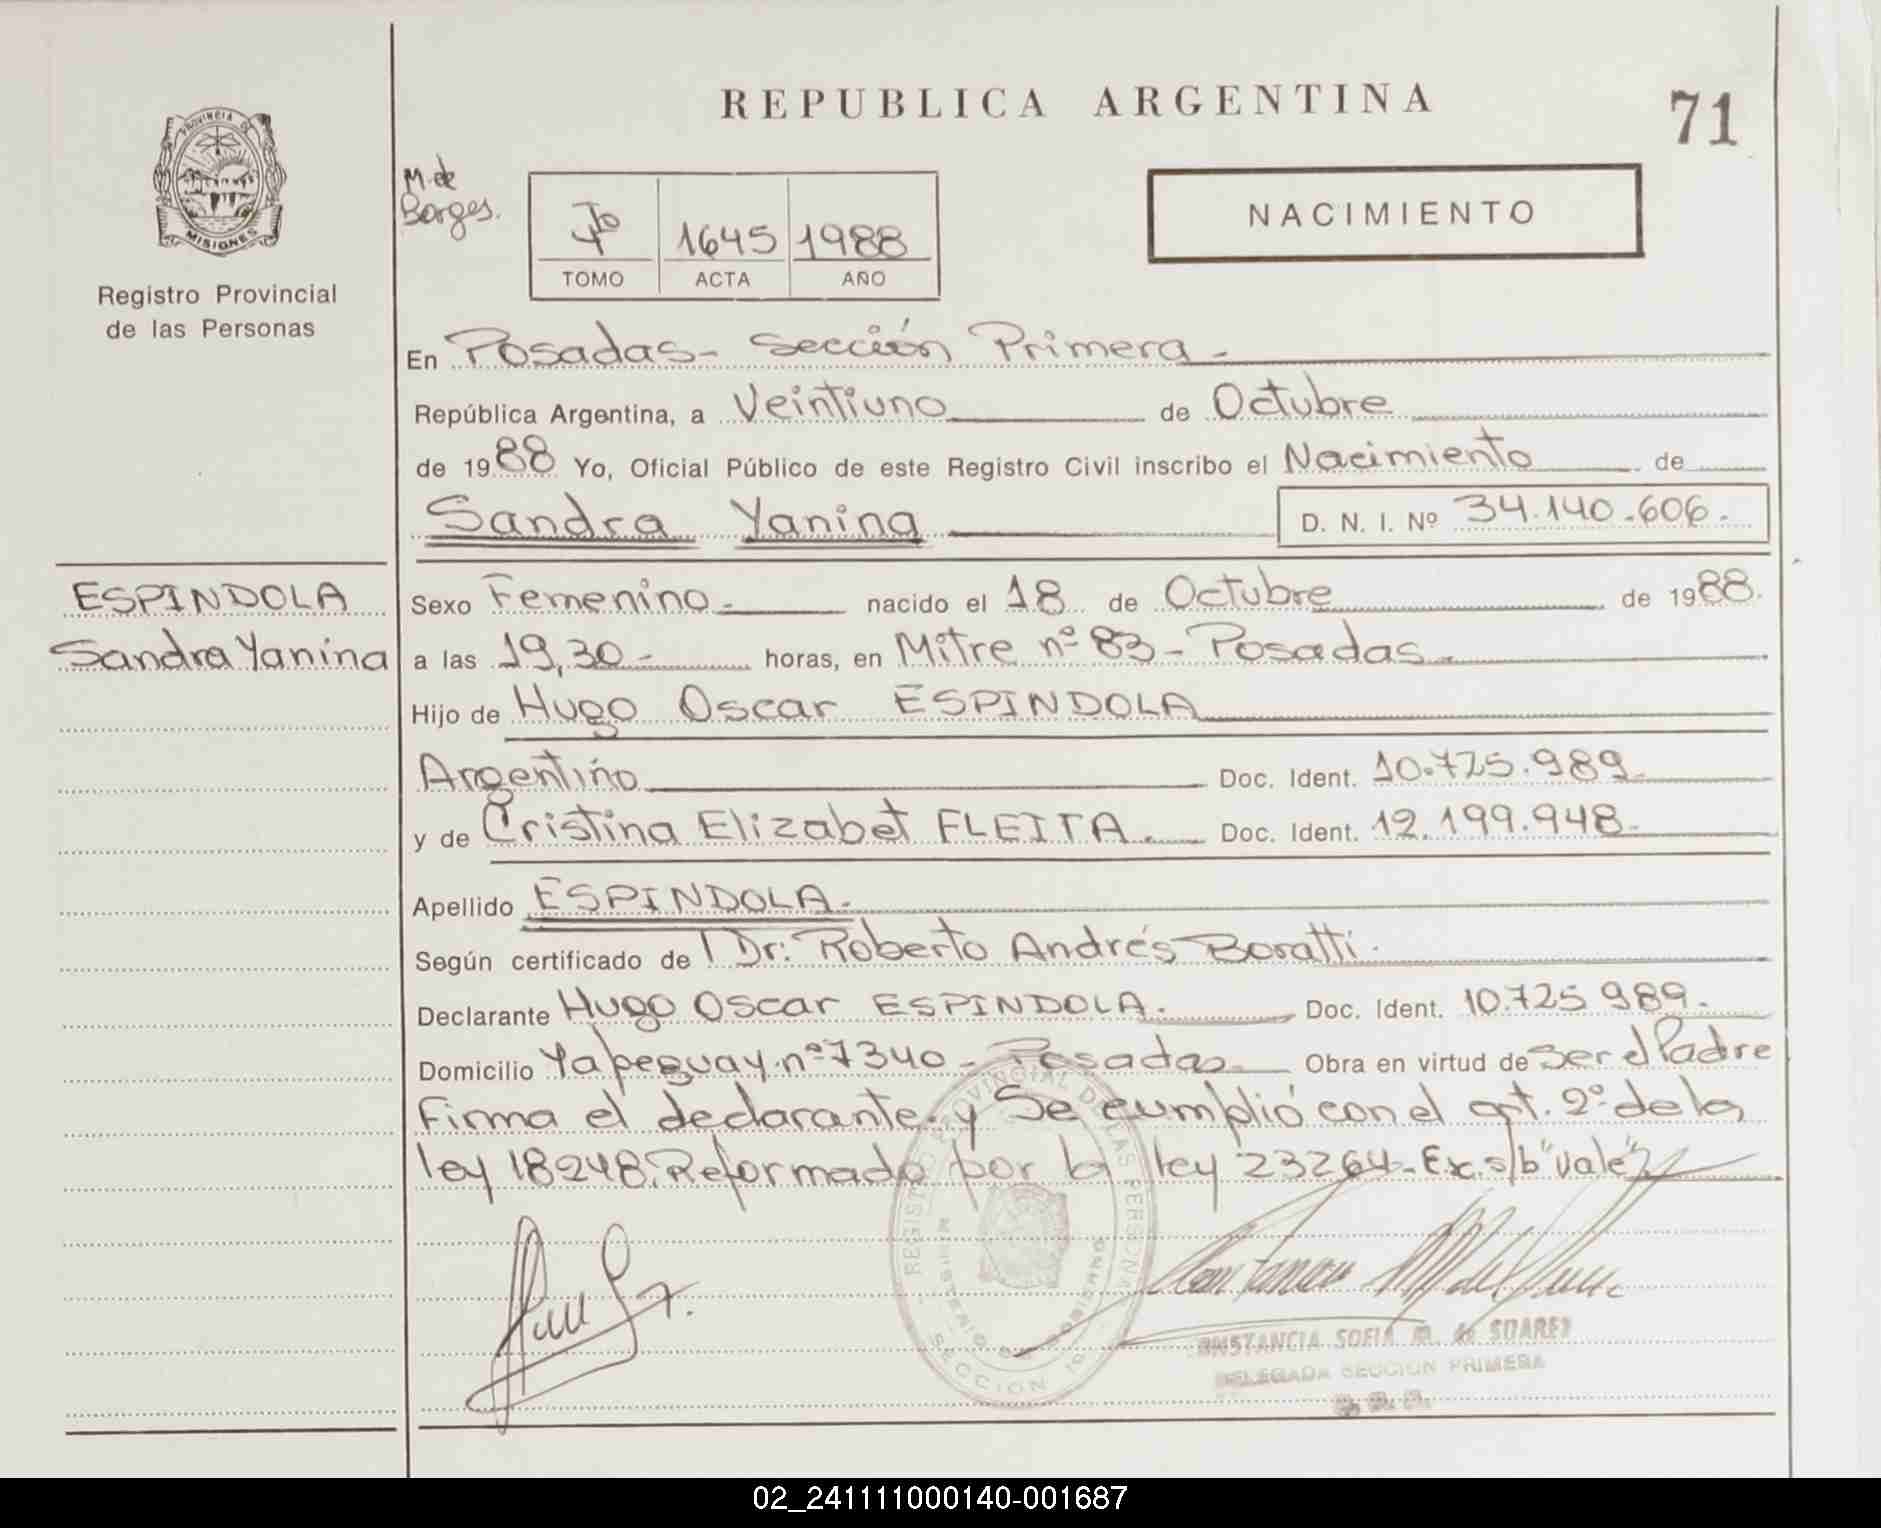 REPUBLICA ARGENTINA
71
PROVINCIA DE
MISIONES
Registro Provincial
de las Personas
M. de
Borges.
1645 1988
TOMO ACTA AÑO
NACIMIENTO
En Posadas - Sección Primera -
República Argentina, a Veintiuno de Octubre
de 1988 Yo, Oficial Público de este Registro Civil inscribo el Nacimiento de
Sandra Yanina D. N. I. Nº 34.140.606.
ESPINDOLA
Sandra Yanina
Sexo Femenino.- nacido el 18 de Octubre de 1988.
a las 19,30 - horas, en Mitre nº 83 - Posadas.
Hijo de Hugo Oscar ESPINDOLA
Argentino Doc. Ident. 10.725.989.
y de Cristina Elizabet FLEITA. Doc. Ident. 12.199.948.
Apellido ESPINDOLA.
Según certificado de Dr: Roberto Andrés
Declarante Hugo Oscar ESPINDOLA. Doc. Ident. 10.725 989.
Domicilio nº 7340 - Posadas Obra en virtud de ser el Padre
Firma el declarante. y Se cumplió con el art. 2º de la
ley 18248. Reformado por la ley 23264. Ex. s/b "vale"
REGISTRO PROVINCIAL DE LAS PERSONAS
MINISTERIO DE GOBIERNO
SECCION 1º
ONSTANCIA SOFIA M. de SUAREZ
DELEGADA SECCION PRIMERA
02_241111000140-001687